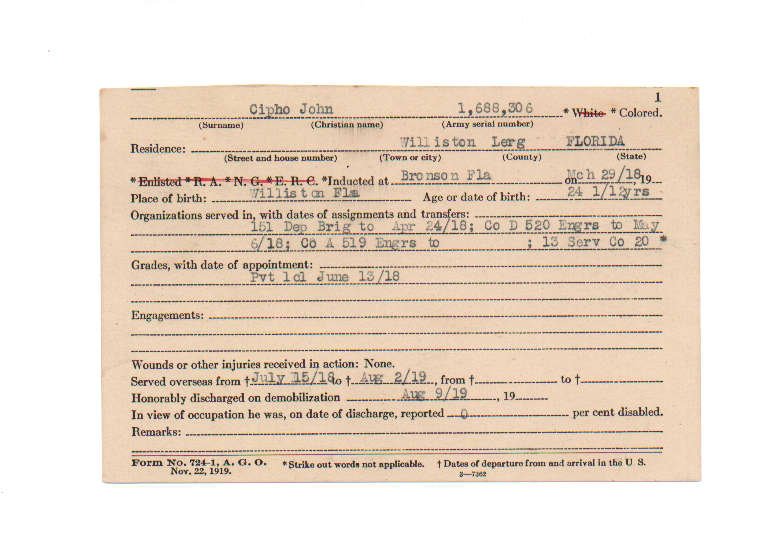 1
Cipho John 1,688,306 * White * Colored.
(Surname) (Christian name) (Army serial number)
Residence: Williston Lerg FLORIDA
(Street and house number) (Town or city) (County) (State)
* Enlisted * R. A. * N. G. * E. R. C. *Inducted at Bronson Fla on Mch 29/18, 19
Place of birth: Williston Fla Age or date of birth: 24 1/12yrs
Organizations served in, with dates of assignments and transfers:
151 Dep Brig to Apr 24/18; Co D 520 Engrs to May
6/18; Co A 519 Engrs to ; 13 Serv Co 20 *
Grades, with date of appointment:
Pvt 1cl June 13/18
Engagements:
Wounds or other injuries received in action: None.
Served overseas from † July 15/18 to † Aug 2/19, from † to †
Honorably discharged on demobilization Aug 9/19, 19
In view of occupation he was, on date of discharge, reported 0 per cent disabled.
Remarks:
Form No. 724-1, A. G. O. *Strike out words not applicable. † Dates of departure from and arrival in the U S.
Nov. 22, 1919. 3—7362